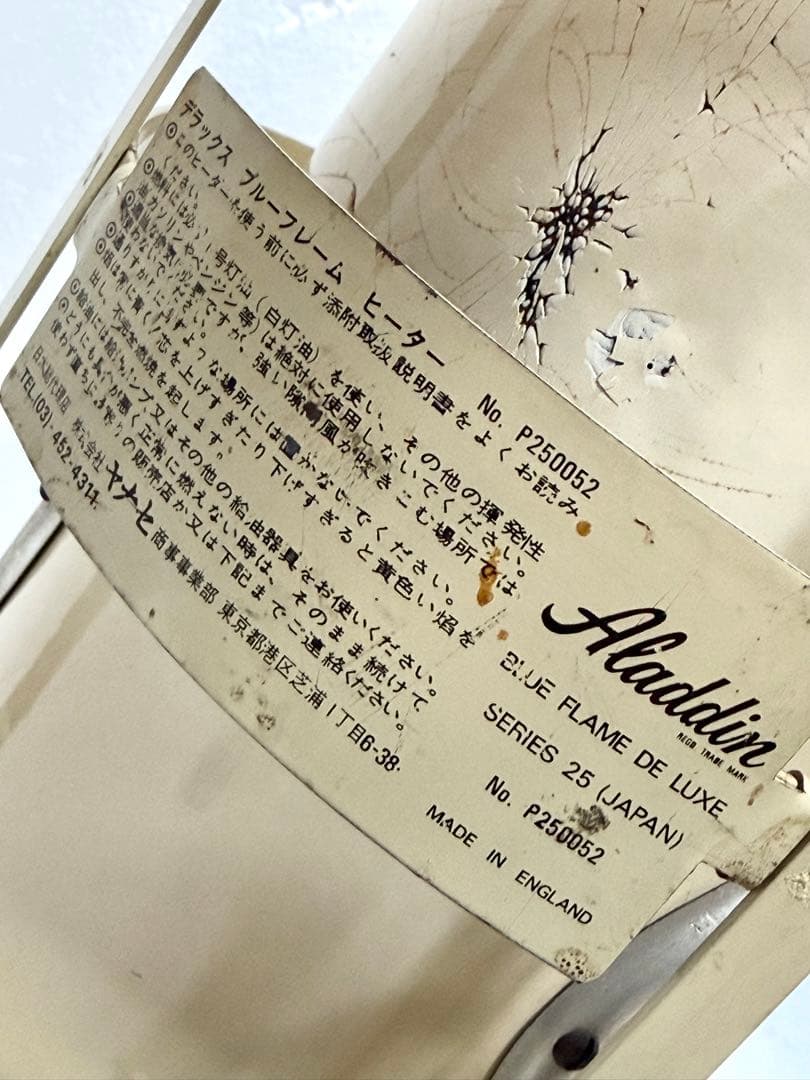 デラックス ブルーフレーム ヒーター No. P250052
⦿このヒーターを使う前に必ず添附取扱説明書をよくお読み
ください。
⦿燃料には必ず1号灯油(白灯油)を使い、その他の揮発性
油(ガソリンやベンジン等)は絶対に使用しないでください。
⦿適度な換気が必要ですが、強い隙間風が吹きこむ場所では
使わないでください。
⦿通りすがりに
場所には置かないでください。
⦿焔は常に青く!芯を上げすぎたり下げすぎると黄色い焔を
出し、不完全燃焼を起します。
⦿給油には給油ポンプ又はその他の給油器具をお使いください。
⦿どうにも具合が悪く正常に燃えない時は、そのまま続けて
使わず直ちにお買求めの販売店か又は下記までご連絡ください。
日本総代理店 株式会社 ヤナセ 商事事業部 東京都港区芝浦1丁目6-38
TEL(03)-452-4311
Aladdin
REGD TRADE MARK
BLUE FLAME DE LUXE
SERIES 25 (JAPAN)
No. P250052
MADE IN ENGLAND